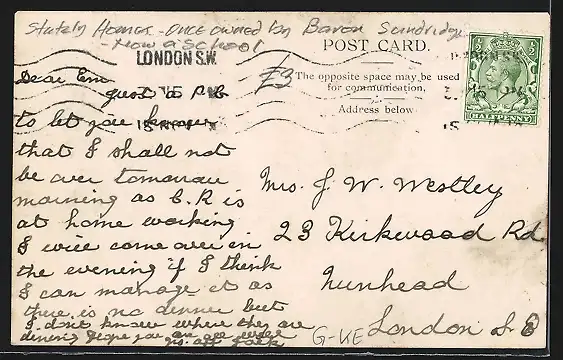 Stately Homes - Once owned by Baron Sundridge
- Now a School
POST CARD.
LONDON S.W.
£3
The opposite space may be used
for communication.
Address below
HALFPENNY
Dear Em
just a P.C
to let you know
that I shall not
be over tomorrow
morning as C.R is
at home working
I will come over in
the evening if I think
I can manage it as
there is no dinner but
I dont know where they are
dining hope you are
Mrs. J. W. Westley
23 Kirkwood Rd
Nunhead
London S E
G-KE